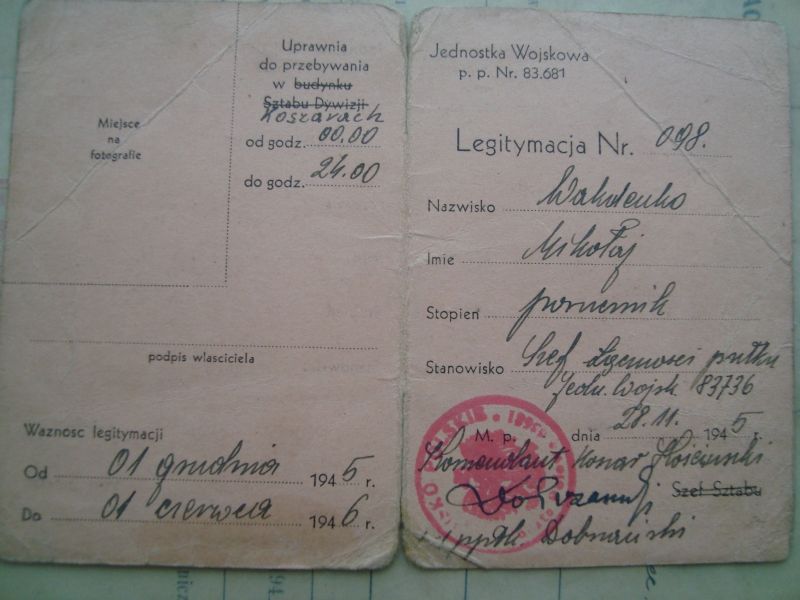 Uprawnia
do przebywania
w budynku
Sztabu Dywizji
Koszarach
od godz. 00.00
do godz. 24.00
Miejsce
na
fotografie
podpis wlasciciela
Waznosc legitymacji
Od 01 grudnia 1945 r.
Do 01 czerwca 1946 r.
Jednostka Wojskowa
p. p. Nr. 83.681
Legitymacja Nr. 098.
Nazwisko Wakulenko
Imie Mikołaj
Stopień porucznik
Stanowisko Szef Łączności pułku
Jedn. Wojsk 83736
M. p. dnia 28.11. 1945 r.
Komendant
Szef Sztabu
ppłk.